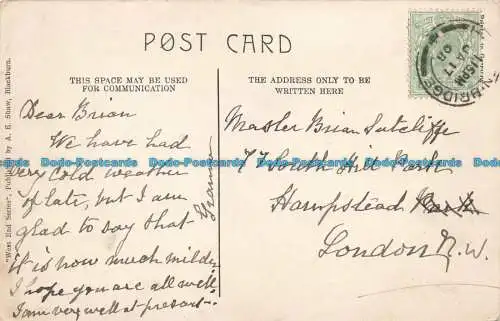 POST CARD
THIS SPACE MAY BE USED
FOR COMMUNICATION
THE ADDRESS ONLY TO BE
WRITTEN HERE
"West End Series", Published by A. E. Shaw, Blackburn.
Dear Brian
We have had
very cold weather
of late, but I am
glad to say that
it is now much milder
I hope you are all well
I am very well at present
Grannie
Master Brian Sutcliffe
77 South Hill Park
Hampstead
London N.W.
BRIDGE
Dodo-Postcards Dodo-Postcards Dodo-Postcards Dodo-Postcards
Dodo-Postcards Dodo-Postcards Dodo-Postcards Dodo-Postcards